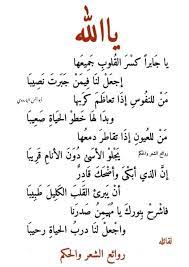 ياالله
يا جابراً كسر القلوب جميعها
إجعل لنا فيمن جبرت نصيبا
من للنفوس إذا تعاظم كربها
وبدا لها خطو الحياة صعيبا
من للعيون إذا تقاطر دمعها
يجلو الأسى دون الأنام قريبا
إن الذي أبكى وأضحك قادر
أن يبرئ القلب الكليل طبيبا
فاشرح بنورك يا مهيمن صدرنا
واجعل لنا درب الحياة رحيبا
لقائله
روائع الشعر والحكم
روائع الشعر والحكم